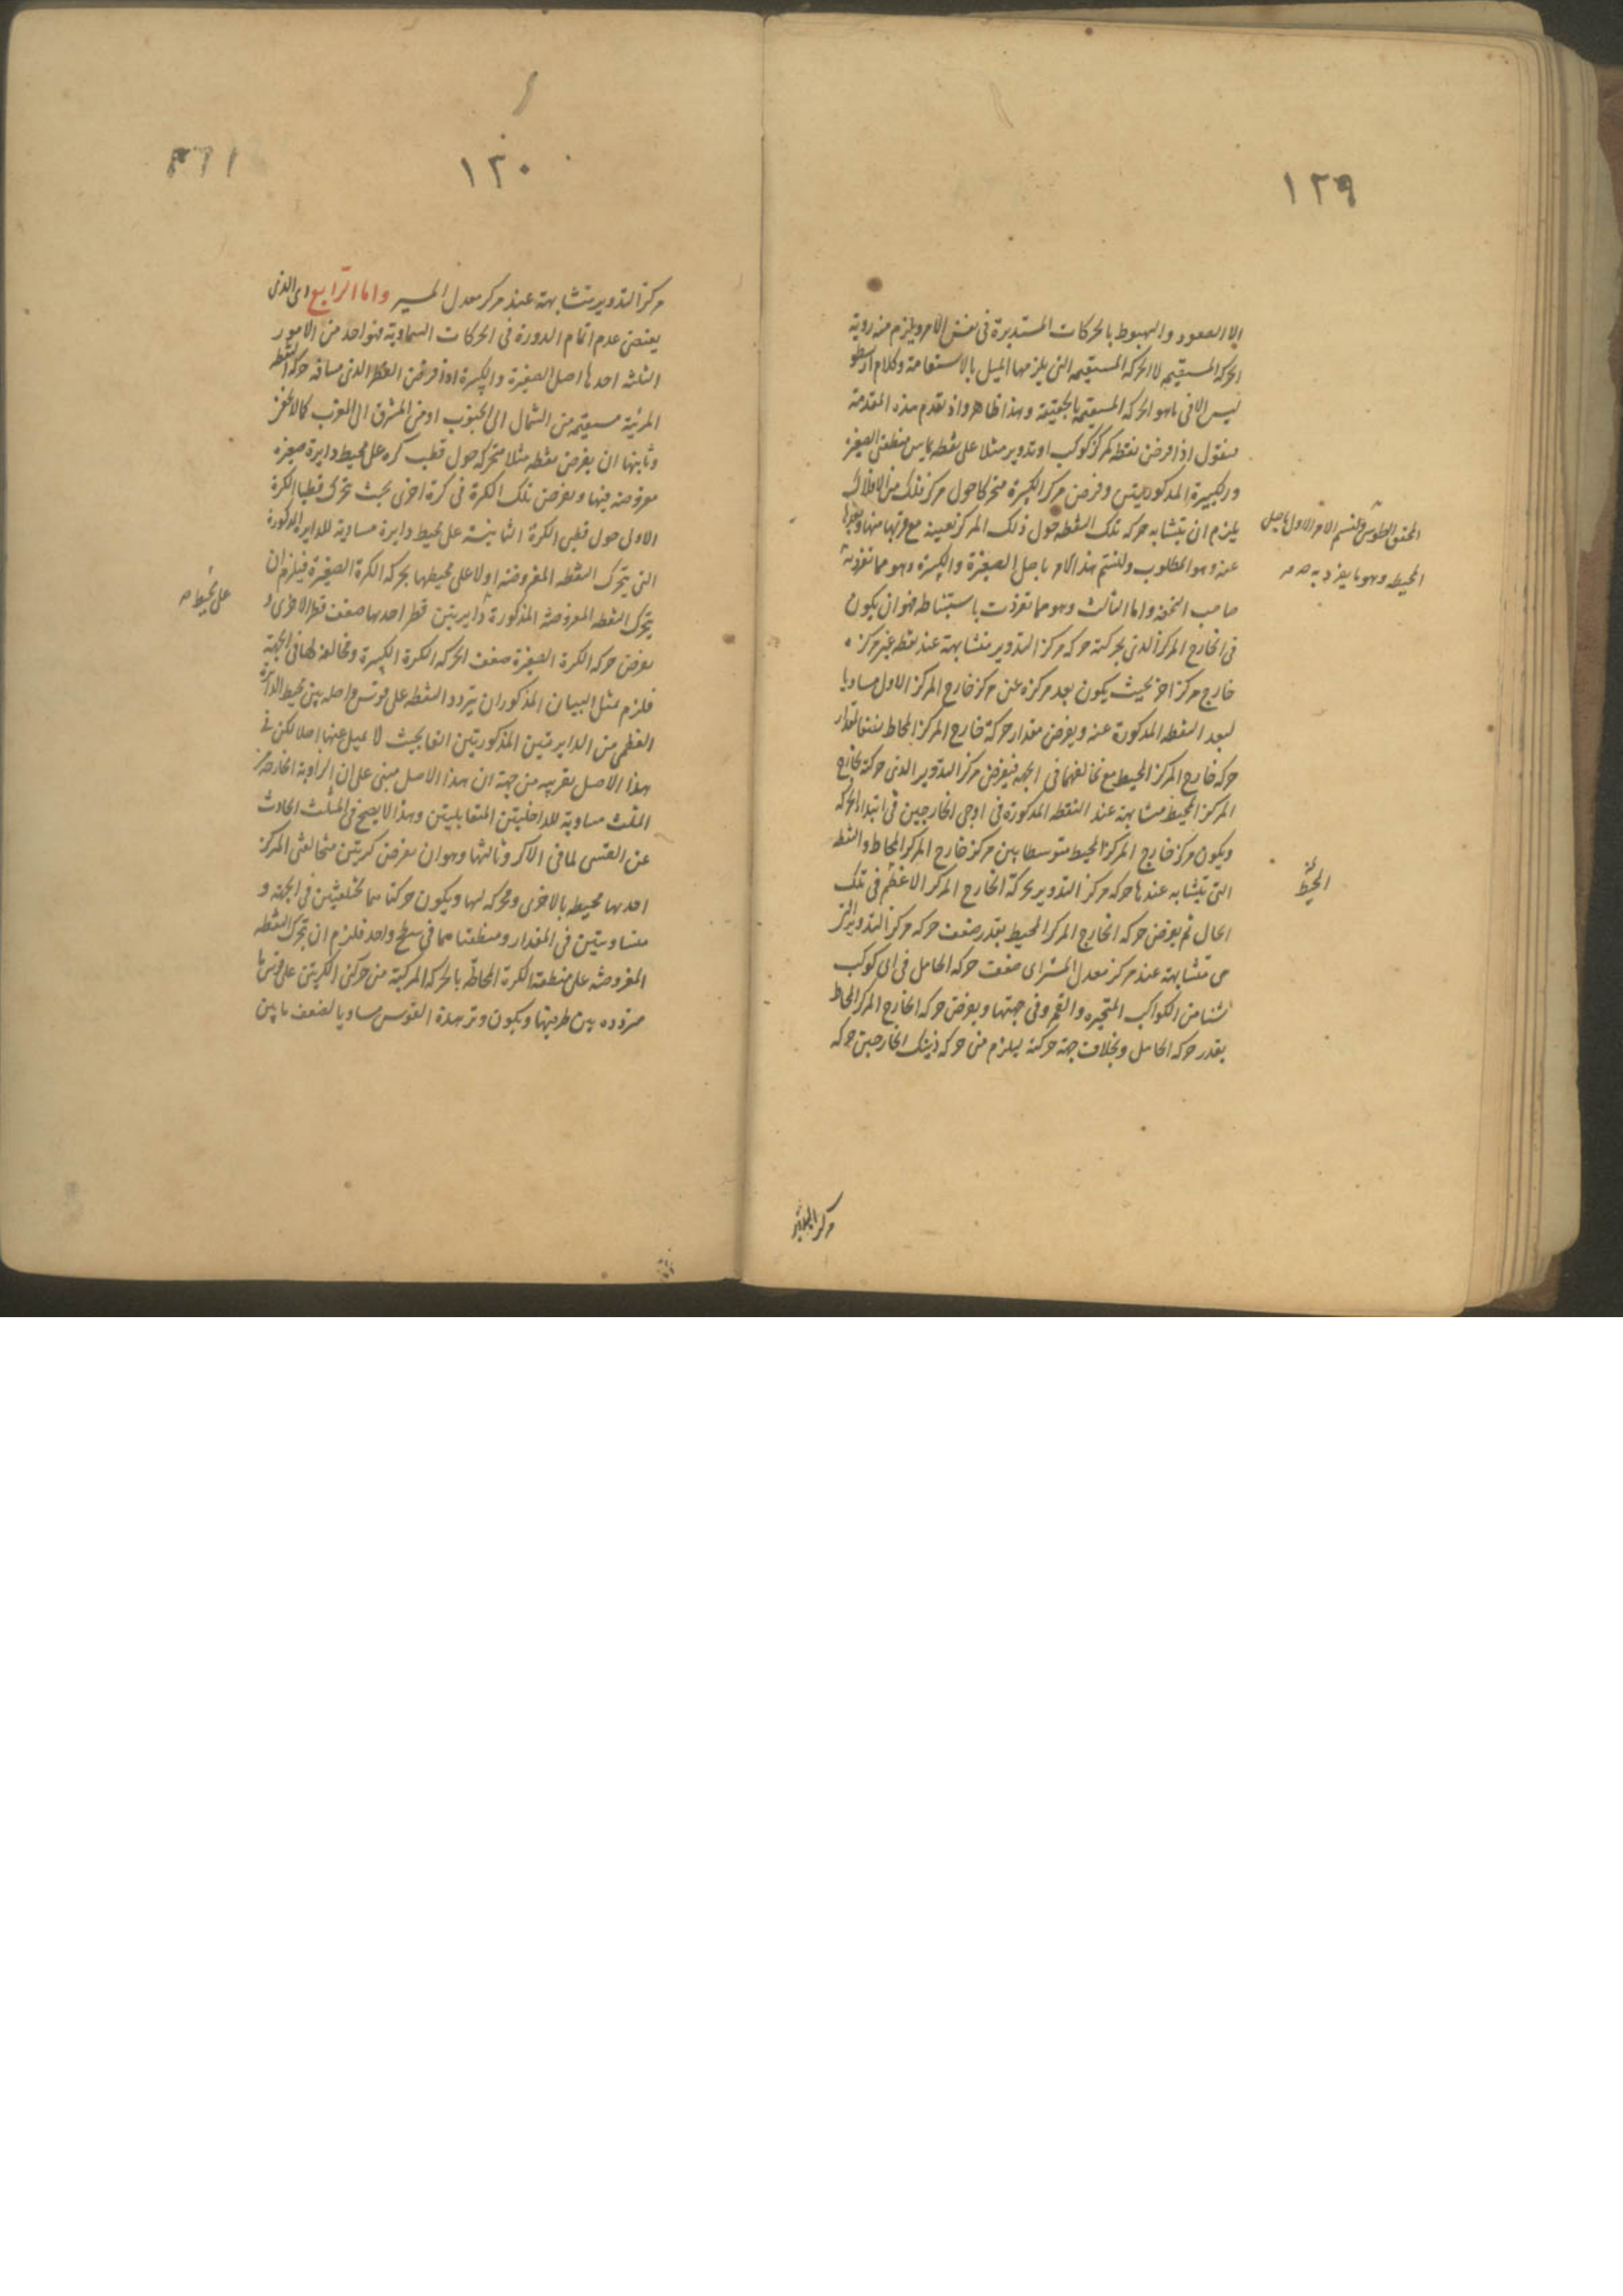 ١٢٩
الا الصعود والهبوط بالحركات المستديرة فى نفس الامر ويلزم منه روية
الحركة المستقيمه لا الحركه المستقيمه التى يلزمها الميل بالاستقامة وكلام ارسطو
ليس الا فى ما هو الحركه المستقيمه بالحقيقة وهذا ظاهر واذ تقدم هذه المقدمة
فنقول اذا فرض نقطه كمركز كوكب او تدوير مثلا على نقطه تماس منطقتى الصغيره
والكبيرة المذكورتيتين وفرض مركز الكبيرة متحركا حول مركز فلك من الافلاك
يلزم ان يتشابه حركه تلك النقطه حول ذلك المركز بعينه مع قربها منها وبعدها
عنه وهو المطلوب ولنسم هذا الامر باصل الصغيرة والكبيرة وهو مما تفرد به
صاحب التحفه واما الثالث وهو مما تفردت باستنباطه فهو ان يكون
فى الخارج المركز الذى بحركته حركه مركز التدوير متشابهة عند نقطه غير مركزه
خارج مركز اخر بحيث يكون بعد مركزه عن مركز خارج المركز الاول مساويا
لبعد النقطه المذكورة عنه ويفرض مقدار حركة خارج المركز المحاط
حركه خارج المركز المحيط مع تخالفهما فى الجهه فيفرض مركز التدوير الذى حركته بخارج
المركز المحيط متشابهة عند النقطه المذكورة فى اوجى الخارجين فى ابتداء الحركه
ويكون مركز خارج المركز المحيط متوسطا بين مركز خارج المركز المحاط والنقطه
التى يتشابه عندها حركه مركز التدوير بحركة الخارج المركز الاعظم فى تلك
الحال ثم يفرض حركه الخارج المركز المحيط بقدر ضعف حركه مركز التدوير التى
هى متشابهة عند مركز معدل المسير اى ضعف حركه الحامل فى اى كوكب
شئنا من الكواكب المتحيره والقمر وفى جهتها ويفرض حركه الخارج المركز المحاط
بقدر حركه الحامل وبخلاف جهة حركته ليلزم من حركه ذينك الخارجين حركه
المحقق الطوسى ولنسم الامر الاول باصل
المحيطه وهو ما يفرد به صح
المحيط
١٣٠
مركز التدوير متشابهة عند مركز معدل المسير واما الرابع اى الذى
يقتضى عدم اتمام الدورة فى الحركات السماوية فهو احد من الامور
الثلثه احدها اصل الصغيرة والكبيرة اذا فرض القطر الذى مسافه حركه النقطه
المرئية مستقيمه من الشمال الى الجنوب او من المشرق الى المغرب كما لا يخفى
وثانيها ان يفرض نقطه مثلا متحركه حول قطب كره على محيط دايرة صغيره
مفروضه فيها ويفرض تلك الكرة فى كرة اخرى بحيث تحرك قطبا الكرة
الاولى حول قطبى الكرة الثانيه على محيط دايرة مساوية للدايره المذكورة
التى يتحرك النقطه المفروضه اولا على محيطها بحركه الكرة الصغيرة فيلزم ان
يتحرك النقطه المفروضه المذكورة دايرتين قطر احدهما ضعف قطر الاخرى و
يفرض حركه الكرة الصغيرة ضعف الحركه الكرة الكبيرة ومخالفه لها فى الجهة
فلزم بمثل البيان المذكور ان يتردد النقطه على قوس واصله بين محيط الدايرة
العظمى من الدايرتين المذكورتين انفا بحيث لا يميل عنها اصلا لكن فى
هذا الاصل تقريبه من جهة ان هذا الاصل مبنى على ان الزاوية الخارجه من
المثلث مساوية للداخليتين المتقابلتين وهذا لا يصح فى المثلث الحادث
عن القسى لما فى الاكر وثالثها وهو ان يفرض كريتين متخالفتى المركز
احدهما محيطه بالاخرى ومحركه لها ويكون حركتاهما مختلفتين فى الجهه و
متساويتين فى المقدار ومنطقتاهما فى سطح واحد فلزم ان يتحرك النقطه
المفروضه على منطقة الكره المحاطه بالحركه المركبة من حركتى الكريتين على قوس ما
متردده بين طرفيها ويكون وتر هذه القوس مساويا لضعف ما بين
على محيط صح